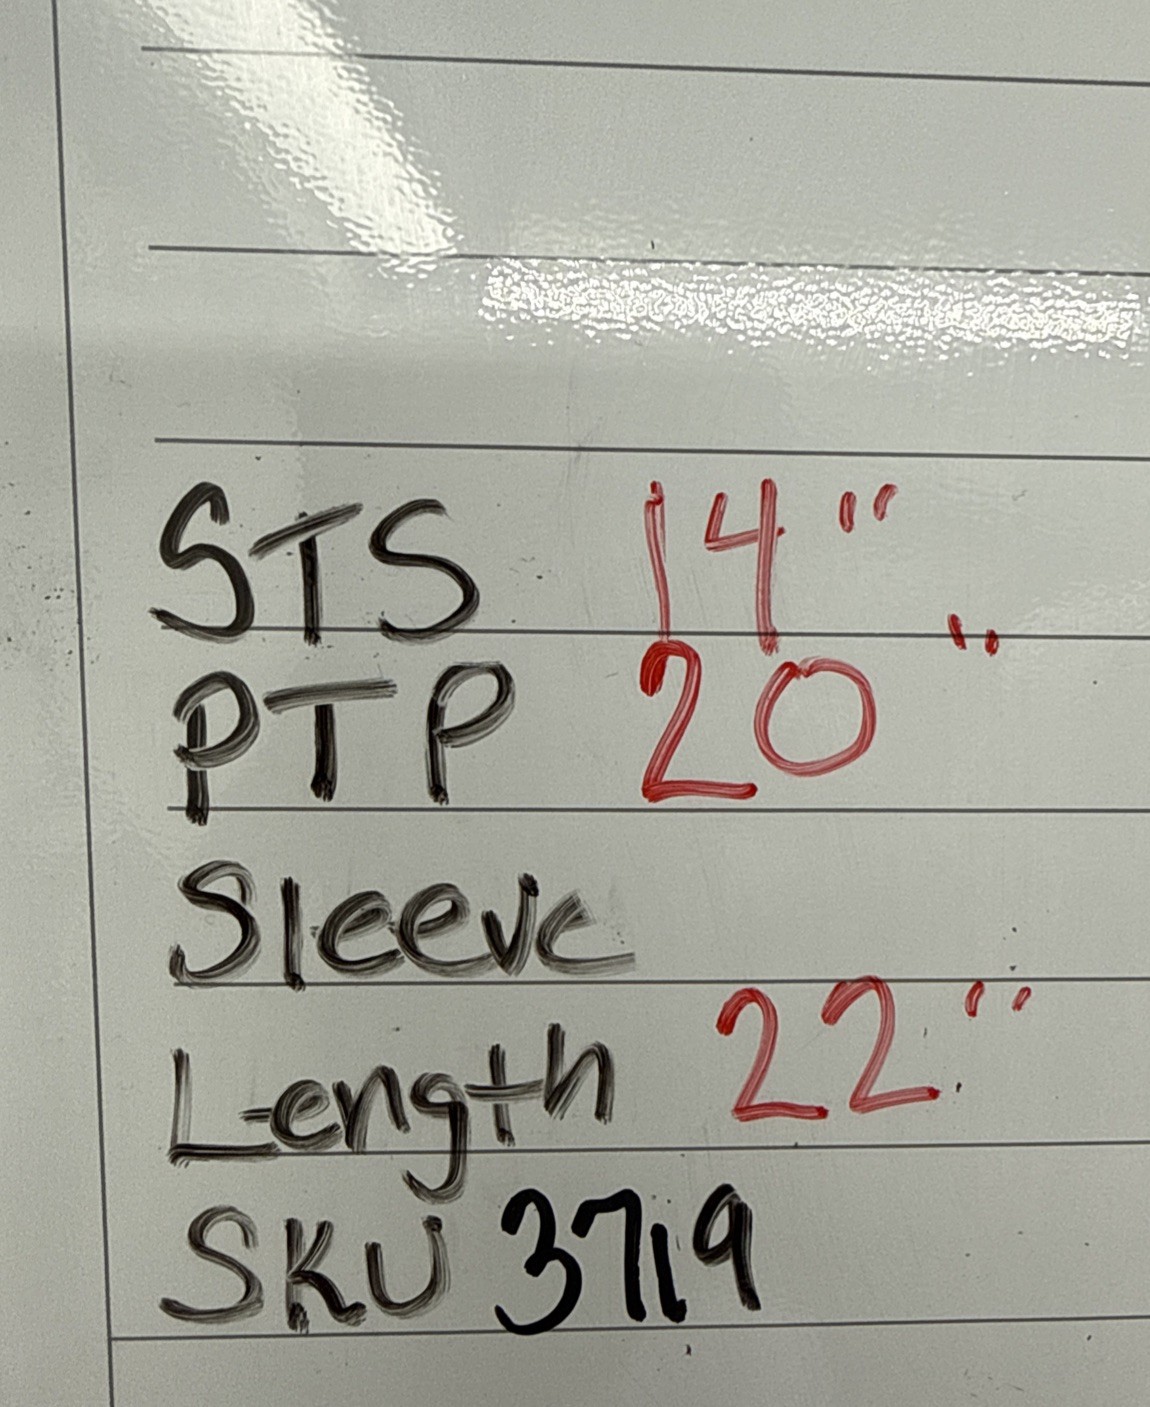 STS 14"
PTP 20"
Sleeve
Length 22"
SKU 3719